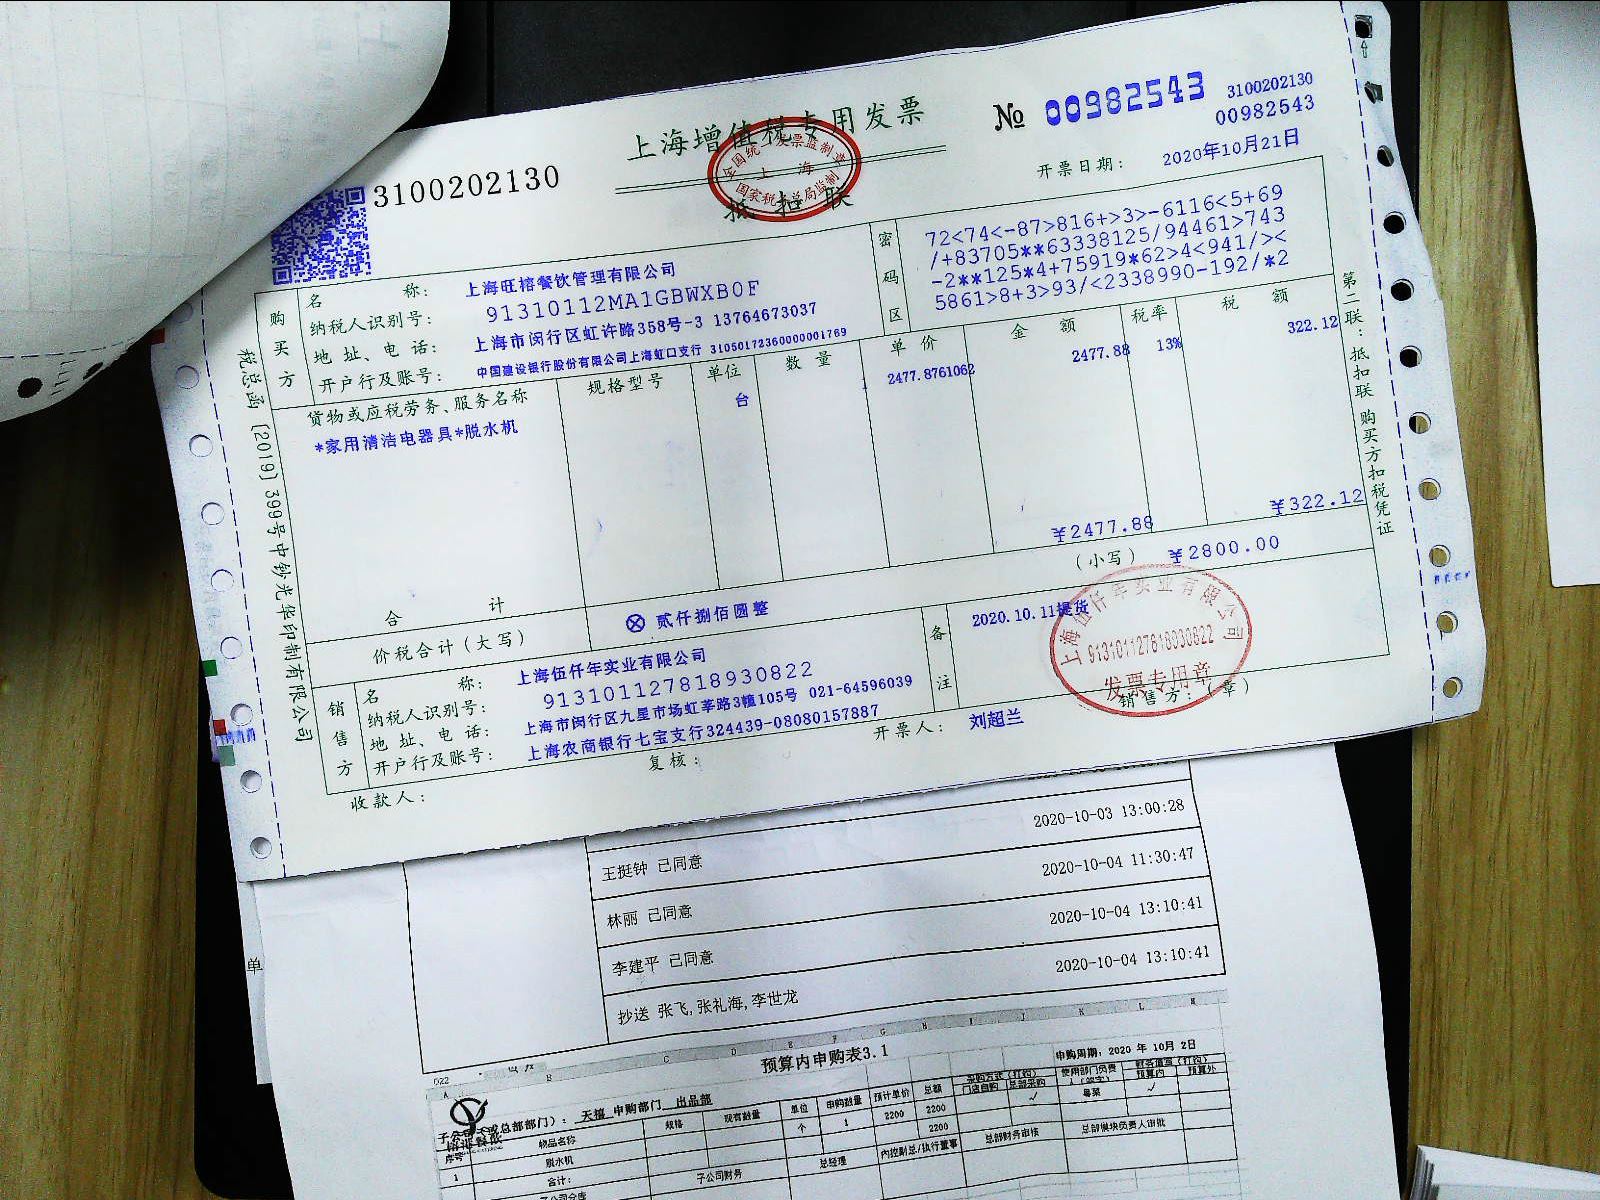 3100202130
上海增值税专用发票
抵扣联
全国统一发票监制章
上海
国家税务总局监制
№ 00982543
3100202130
00982543
开票日期: 2020年10月21日
购买方
名称: 上海旺榕餐饮管理有限公司
纳税人识别号: 91310112MA1GBWXB0F
地址、电话: 上海市闵行区虹许路358号-3 13764673037
开户行及账号: 中国建设银行股份有限公司上海虹口支行 31050172360000001769
密码区
72<74<-87>816+>3>-6116<5+69
/+83705**63338125/94461>743
-2**125*4+75919*62>4<941/><
5861>8+3>93/<2338990-192/*2
货物或应税劳务、服务名称 规格型号 单位 数量 单价 金额 税率 税额
*家用清洁电器具*脱水机 台 1 2477.8761062 2477.88 13% 322.12
合计 ¥2477.88 ¥322.12
价税合计(大写) ⊗贰仟捌佰圆整 (小写) ¥2800.00
销售方
名称: 上海伍仟年实业有限公司
纳税人识别号: 913101127818930822
地址、电话: 上海市闵行区九星市场虹莘路3幢105号 021-64596039
开户行及账号: 上海农商银行七宝支行324439-08080157887
备注
2020.10.11提货
上海伍仟年实业有限公司
913101127818930822
发票专用章
收款人: 复核: 开票人: 刘超兰 销售方:(章)
税总函[2019]399号中钞光华印制有限公司
第二联:抵扣联 购买方扣税凭证
2020-10-03 13:00:28
王挺钟 已同意 2020-10-04 11:30:47
林丽 已同意 2020-10-04 13:10:41
李建平 已同意 2020-10-04 13:10:41
抄送 张飞,张礼海,李世龙
单
D22
预算内申购表3.1
申购周期: 2020 年 10月 2日
天禧 申购部门 出品部
序号 物品名称 规格 现有数量 单位 申购数量 预计单价 总额 采购方式(打钩) 门店自购 总部采购 使用部门负责人(签字) 预算内 预算外
1 脱水机 个 1 2200 2200 ✓ 粤菜 ✓
合计: 2200
子公司财务 总经理 内控副总/执行董事 总部财务审核 总部模块负责人审批